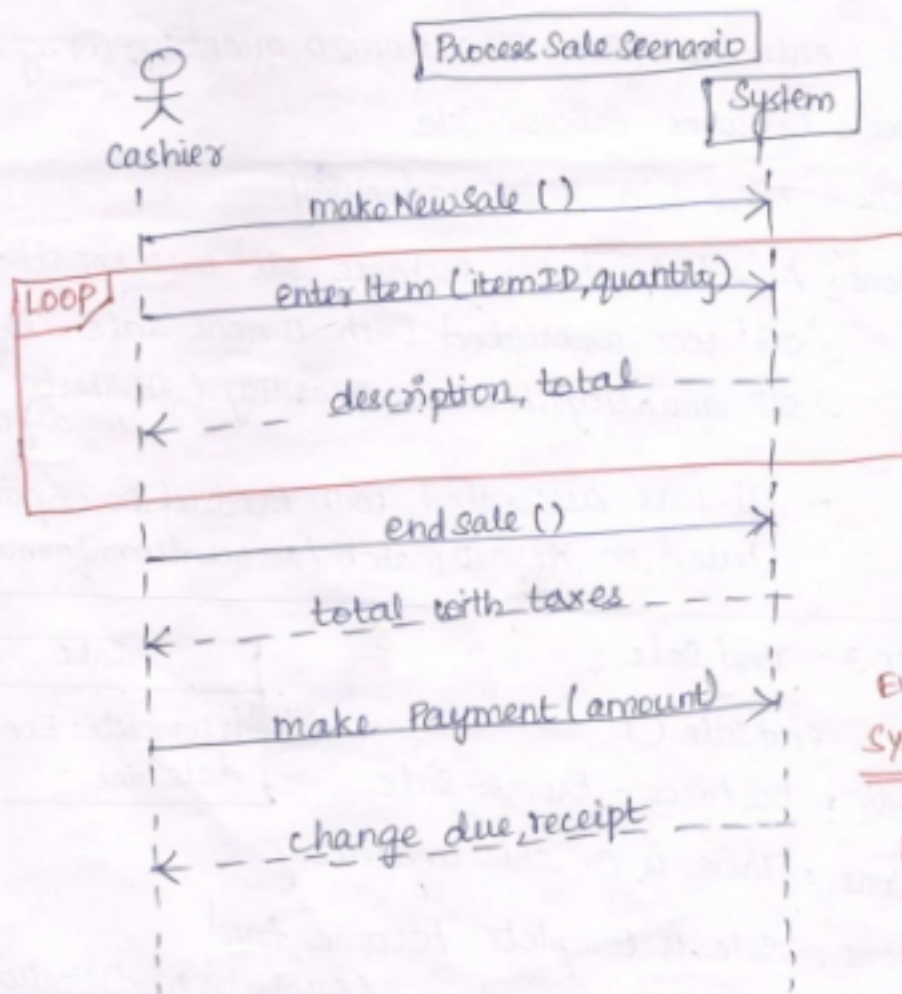 Process Sale Scenario
System
Cashier
makeNewSale ()
LOOP
enterItem (itemID, quantity)
description, total
endSale ()
total with taxes
make Payment (amount)
change due, receipt